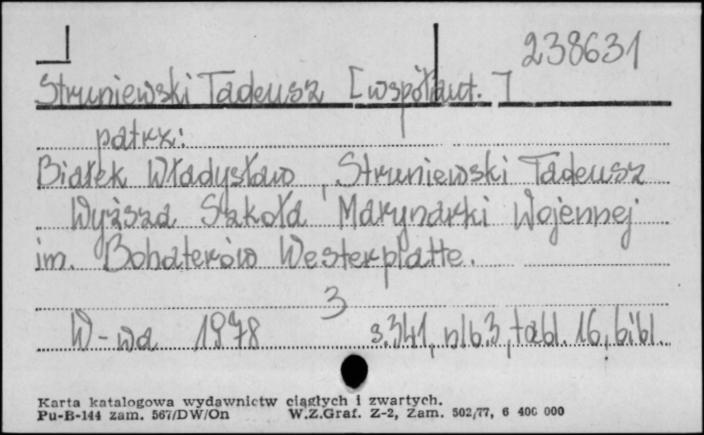 238631
Struniewski Tadeusz [współaut.]
patrz:
Białek Władysław, Struniewski Tadeusz
Wyższa Szkoła Marynarki Wojennej
im. Bohaterów Westerplatte.
3
W-wa 1978 s.341, nlb.3, tabl. 16, bibl.
Karta katalogowa wydawnictw ciągłych i zwartych.
Pu-B-144 zam. 567/DW/On W.Z.Graf. Z-2, Zam. 502/77, 6 400 000